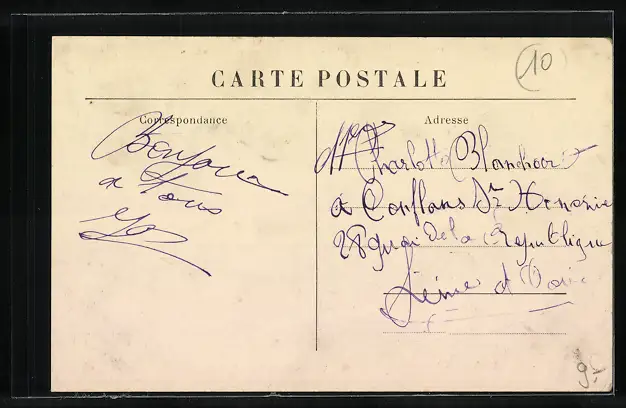 CARTE POSTALE
Correspondance
Adresse
(10)
Bonjour
a tous
Mlle Charlotte
a Conflans Ste Honorine
28 quai de la Republique
Seine et Oise
9.-